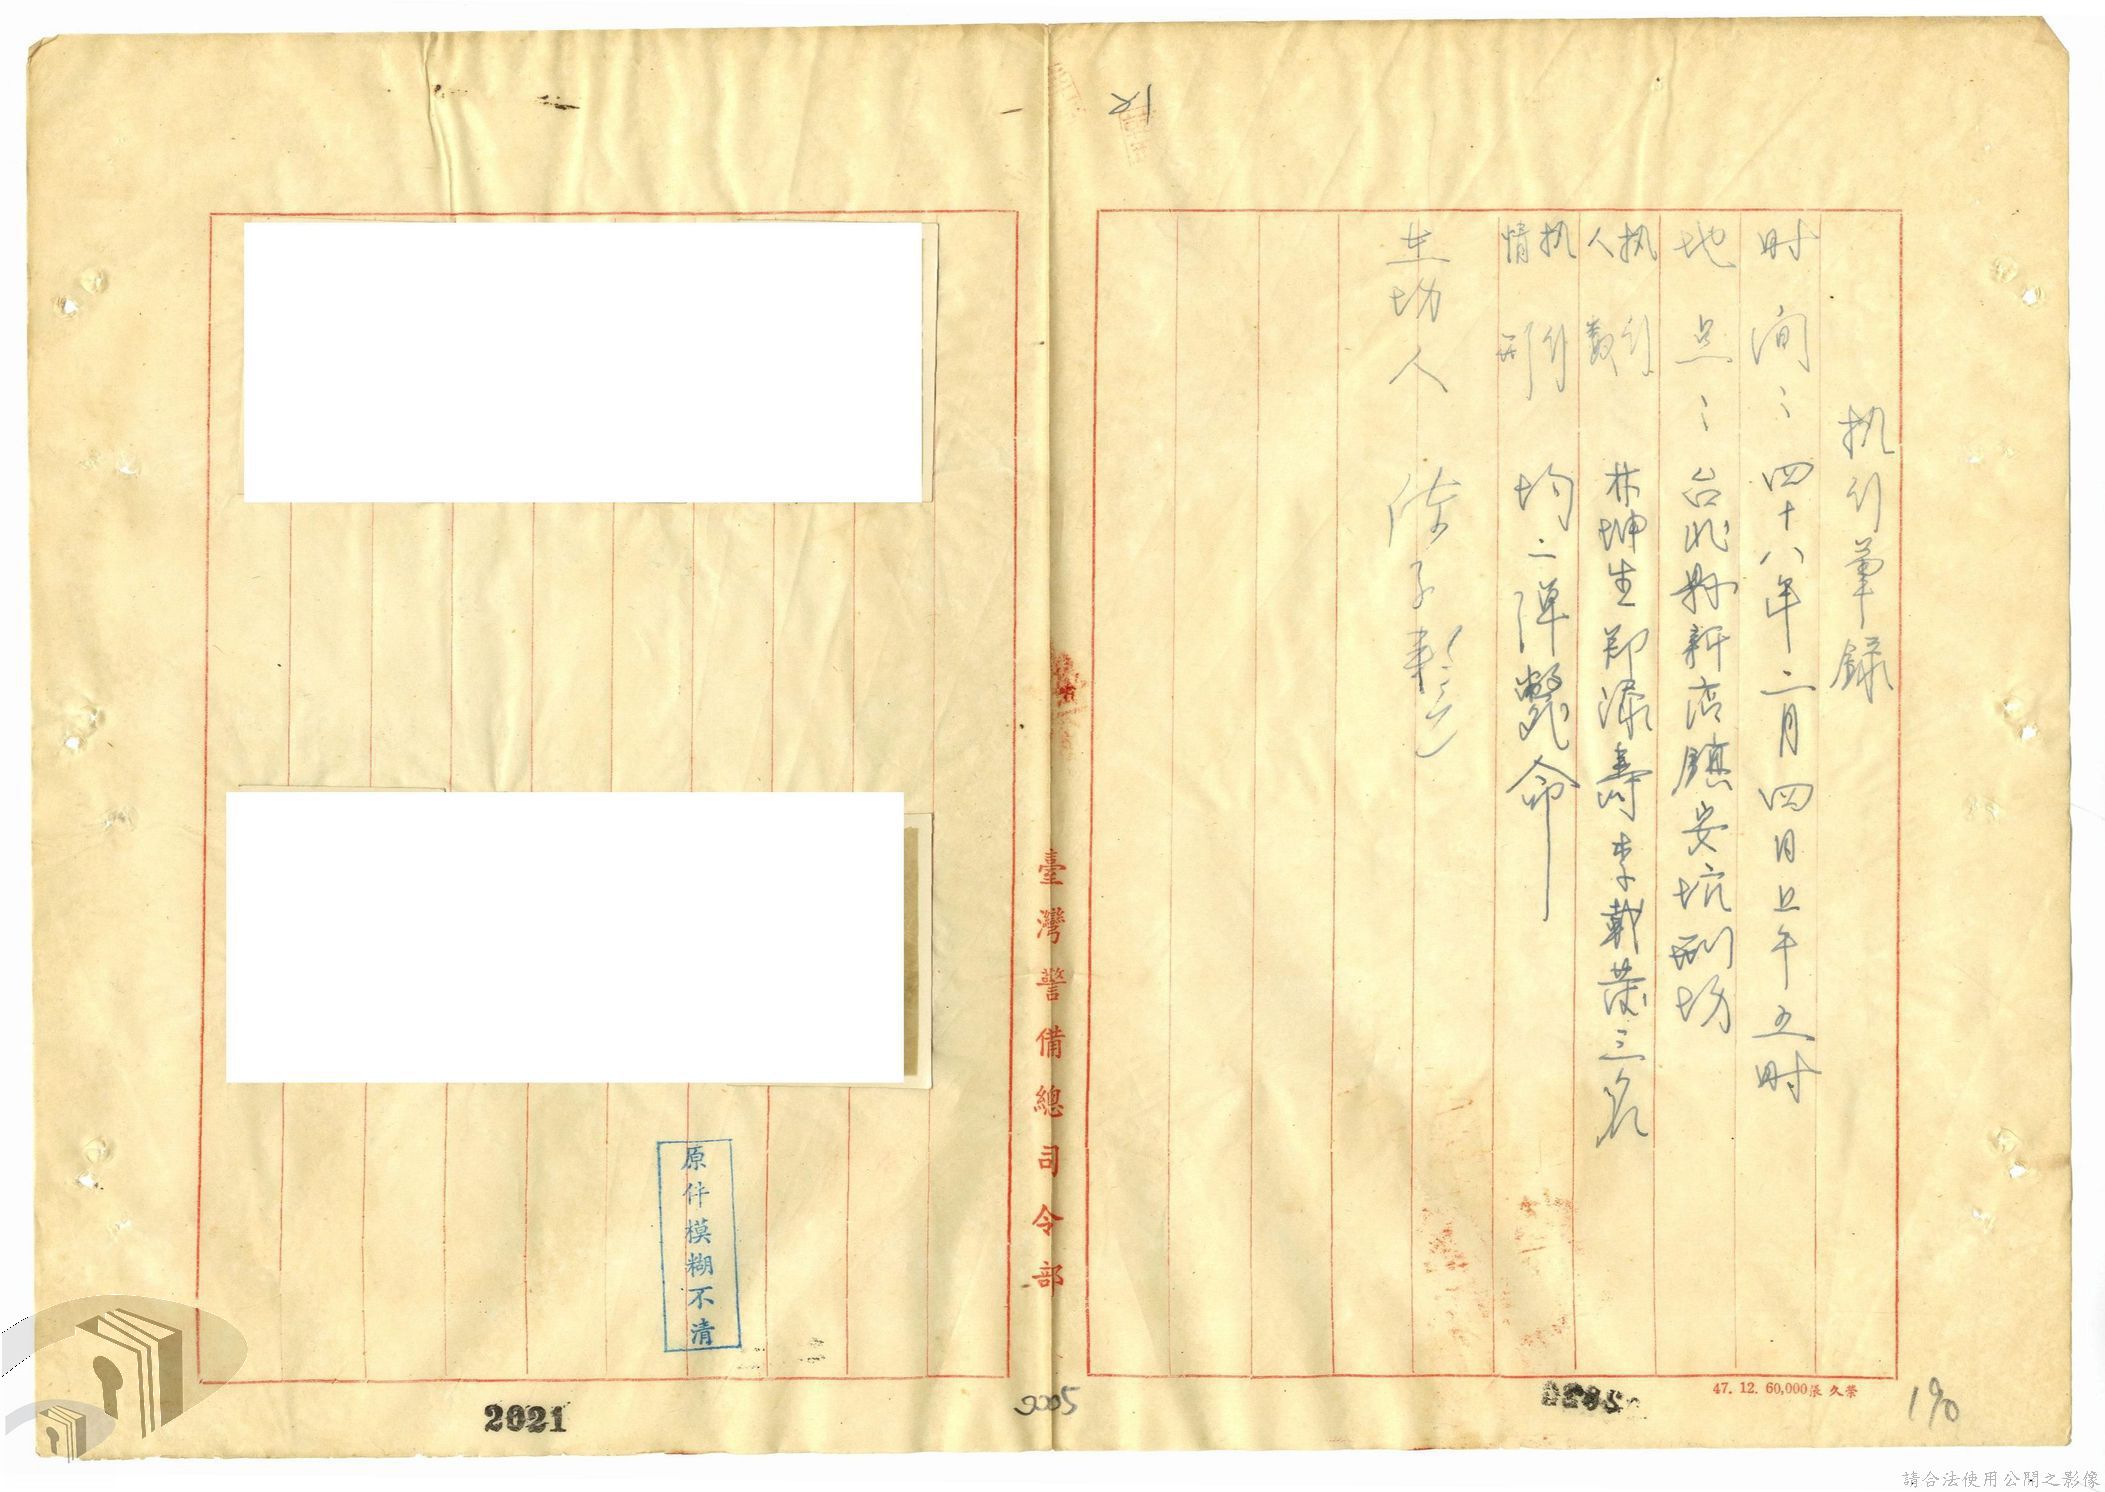 执行筆録
时间：四十八年二月四日上午五时
地点：台北縣新店鎮安坑刑场
执行人數 林坤生郑添壽李載榮三名
执行情形 均二弹斃命
在场人
臺灣警備總司令部
47. 12. 60,000張 久榮
190
原件模糊不清
2021
請合法使用公開之影像